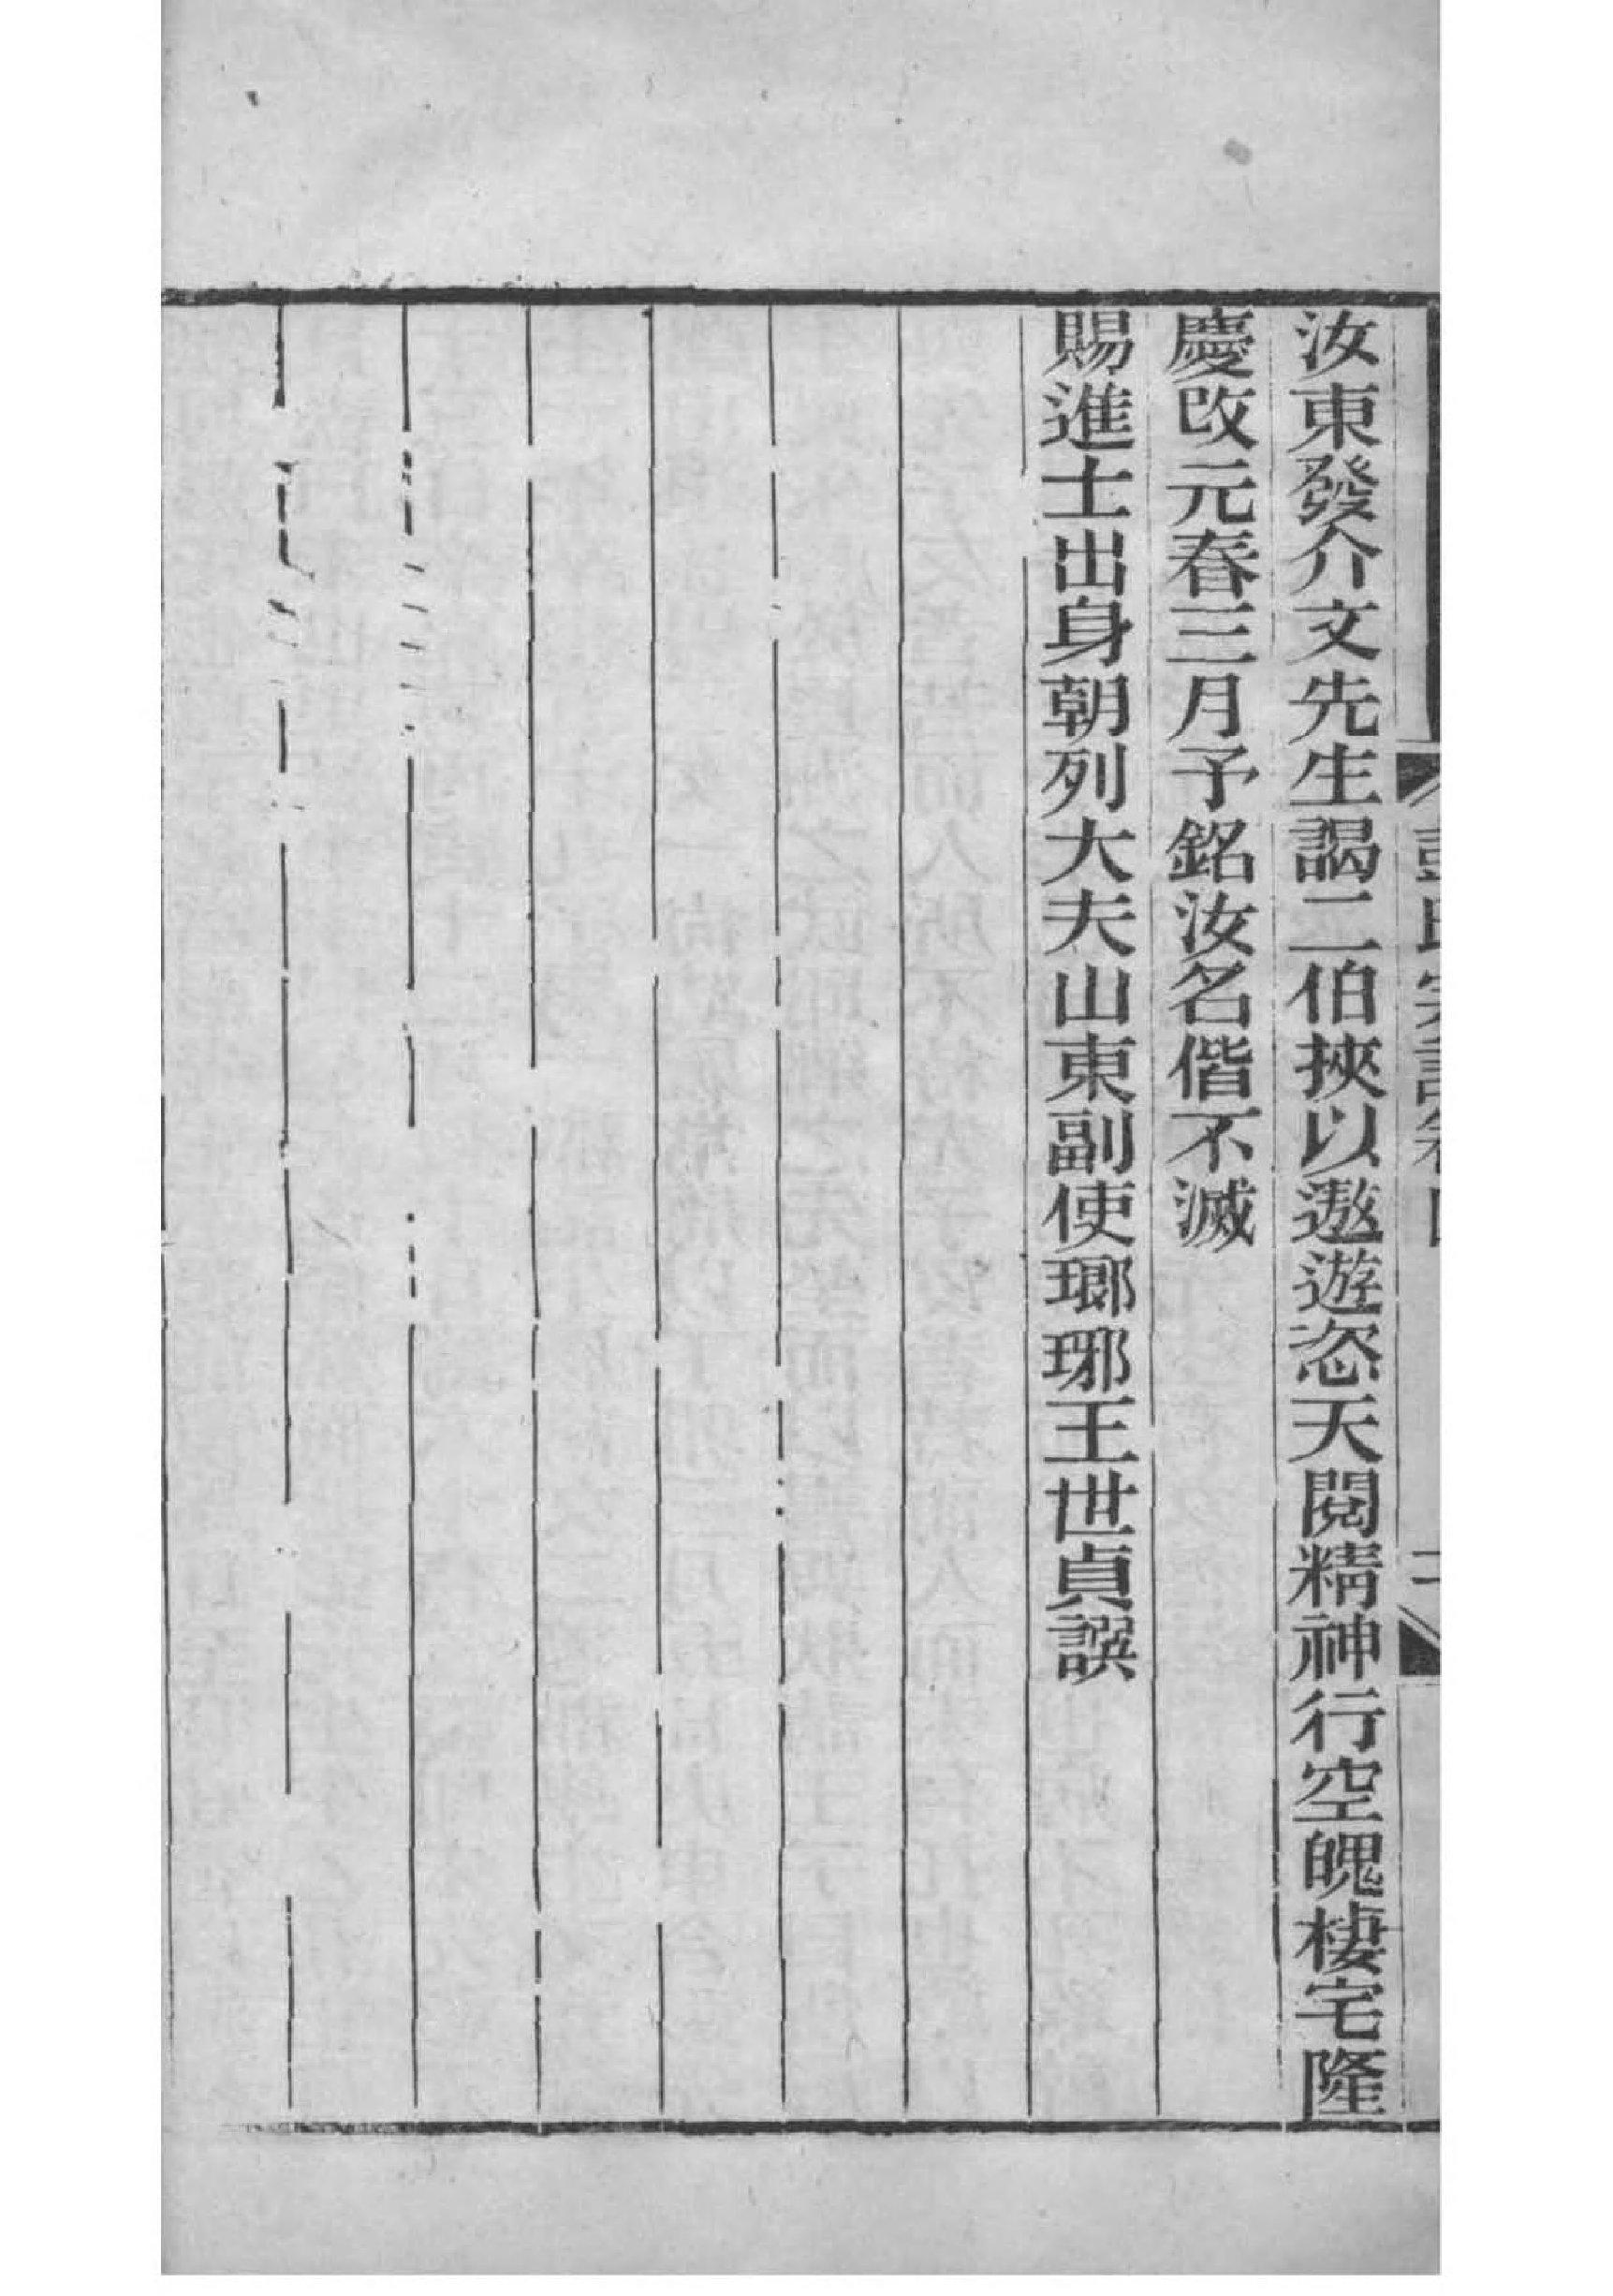 汝東發介文先生謁二伯挾以遨遊恣天閱精神行空魄棲宅隆
慶改元春三月予銘汝名偕不滅
賜進士出身朝列大夫山東副使瑯琊王世貞譔
二